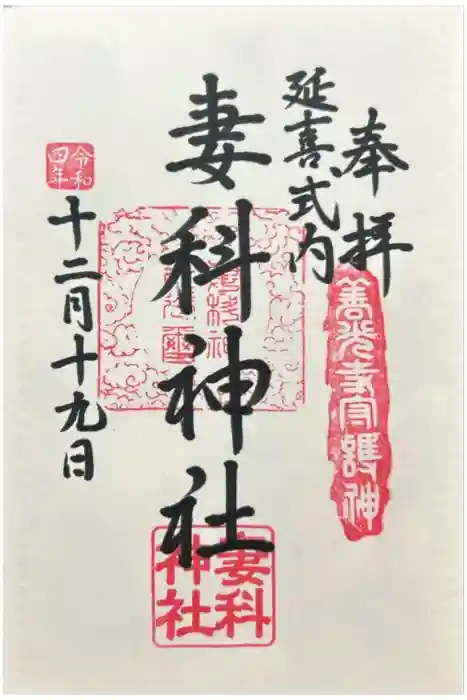 奉拝
延喜式内
善光寺守護神
妻科神社
妻科
神社
令和
四年
十二月十九日